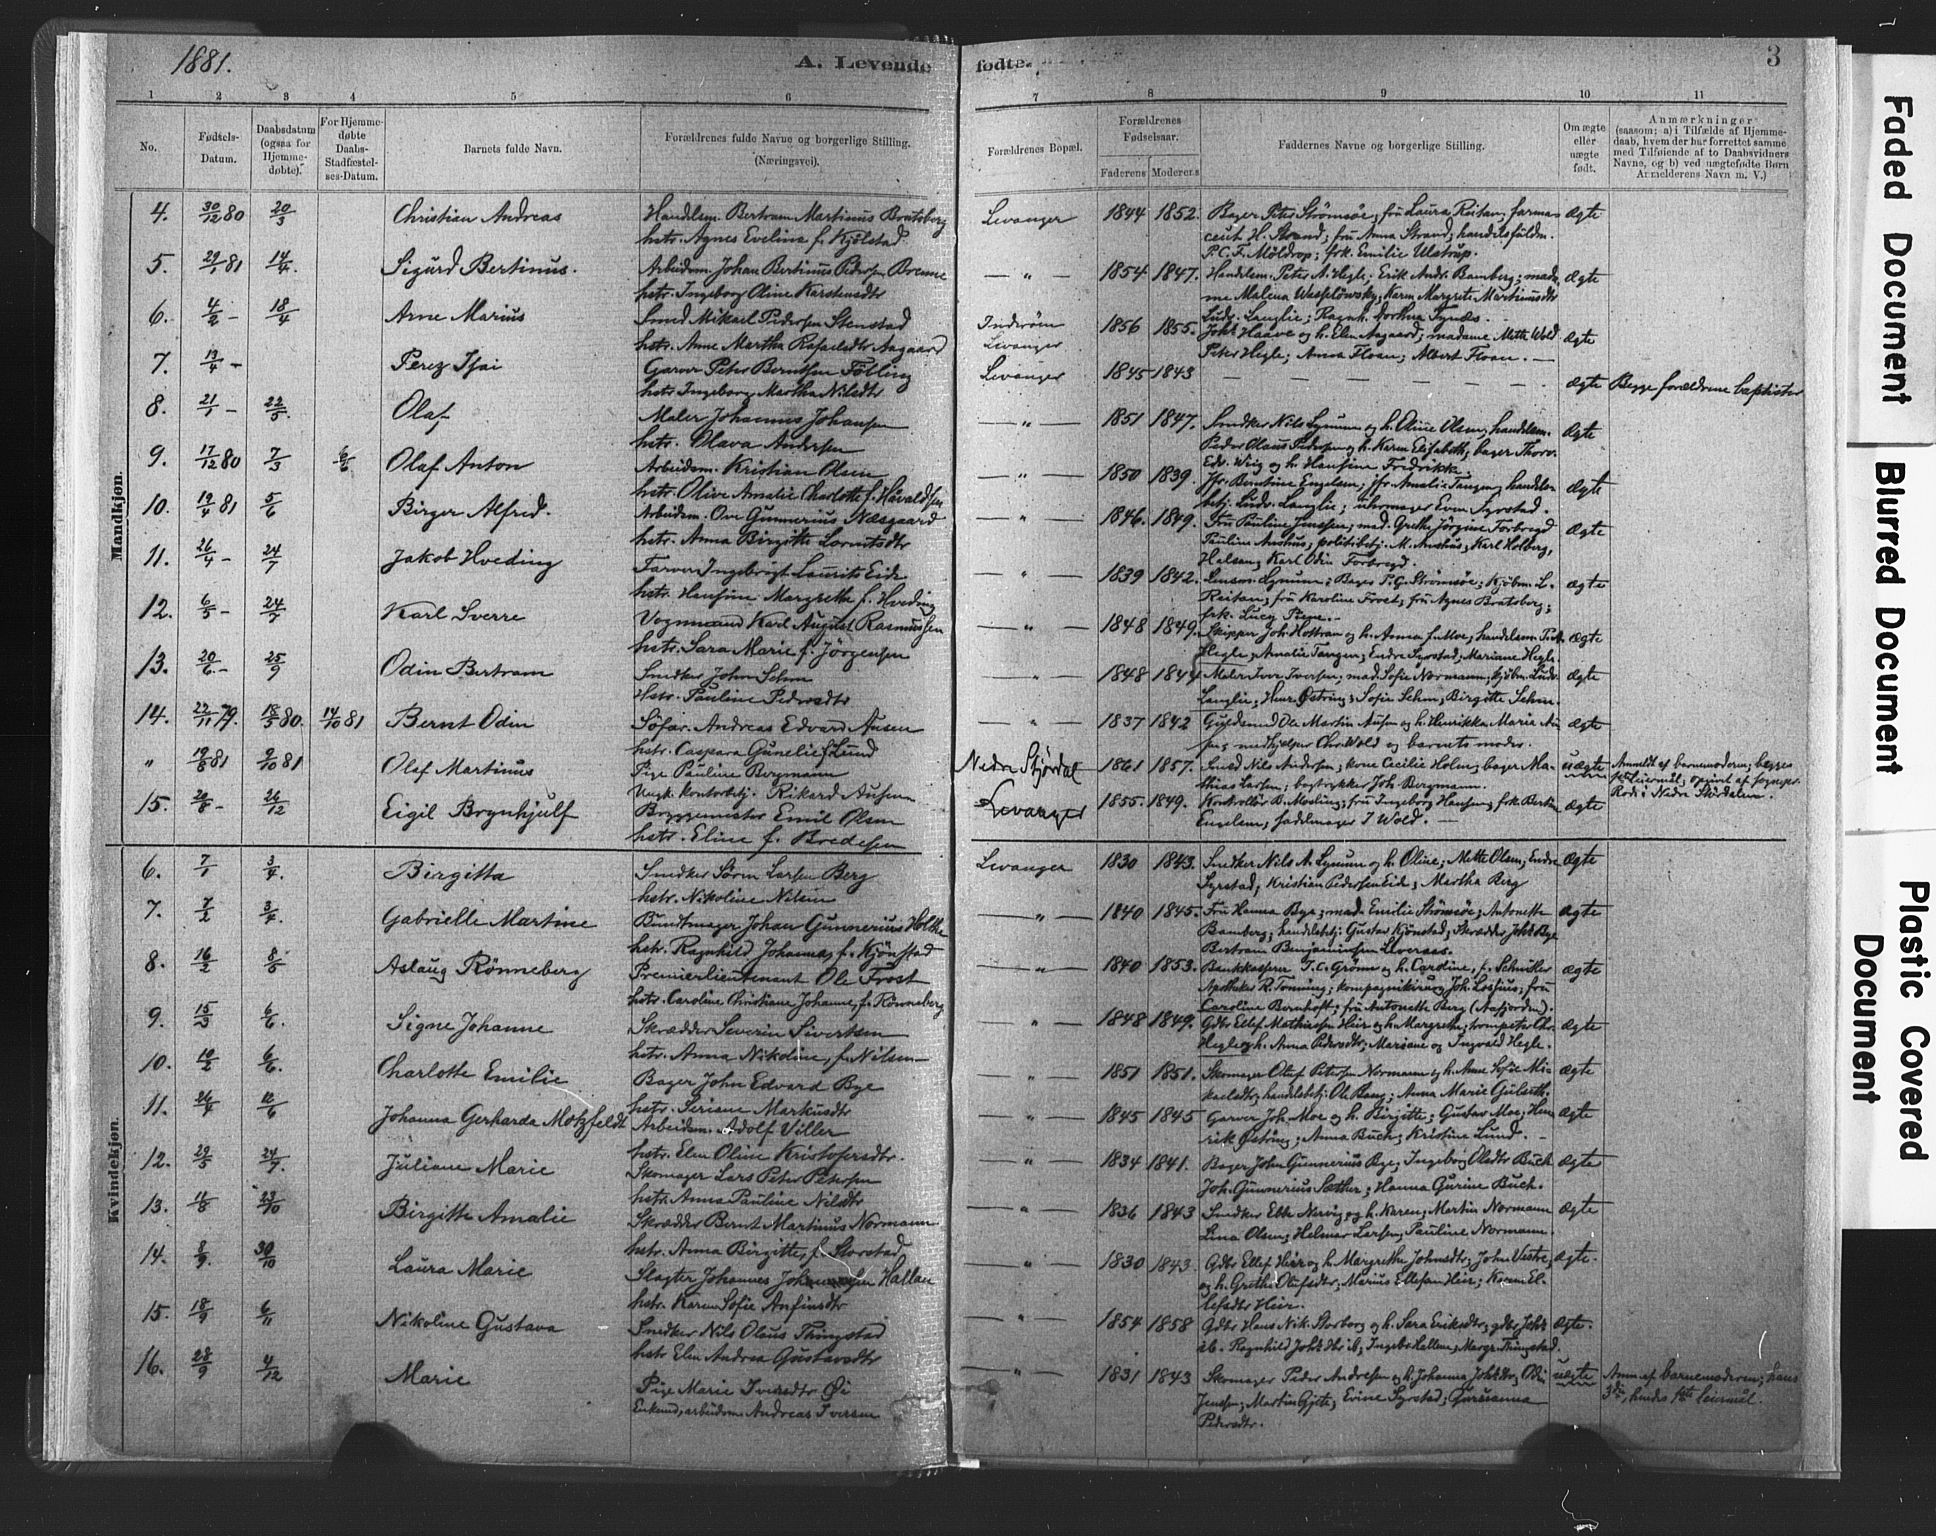 1881.
A. Levende fødte.
3
1 2 3 4 5 6 7 8 9 10 11
No.
Fødsels-Datum.
Daabsdatum (ogsaa for Hjemme-døbte).
For Hjemme-døbte Daabs-Stadfæstel-ses-Datum.
Barnets fulde Navn.
Forældrenes fulde Navne og borgerlige Stilling. (Næringsvei).
Forældrenes Bopæl.
Forældrenes Fødselsaar.
Faderens Moderens
Faddernes Navne og borgerlige Stilling.
Om ægte eller uægte født.
Anmærkninger
(saasom; a) i Tilfælde af Hjemme-
daab, hvem der har forrettet samme
med Tilføiende af to Daabsvidners
Navne, og b) ved uægtefødte Børn
Anmelderens Navn m. V.)
Mandkjøn.
4. 30/12 80 20/3 Christian Andreas Handelsm. Bertram Martinus Bratsberg
hstr. Agnes Eveline f. Kjölstad.
Levanger 1844 1852. Bager Peter Strömsöe; fru Laura Reitan; farma-
ceut H. Strand; fru Anna Strand; handelsfuldm.
P.C.F. Möldrop; frk. Emilie Ulstrup.
ægte
5. 29/1 81 14/4. Sigurd Bertinus. Arbeidsm. Johan Bertinus Pedersen Brenne
hstr. Ingeborg Oline Karstensdtr
— " — 1854 1847. Handelsm. Peter A. Hegle; Erik Andr. Bamberg; mada-
me Malena Wasslöwsky; Karen Margrete Martinusdtr
ægte
6. 4/2 – 18/4 Arne Marius Smed Mikael Pedersen Stenstad
hstr. Anne Martha Rafaelsdtr Aagaard
Inderöen
Levanger
1856 1855. Ludv. Langlie; Ragnh. Dorthea Synæs.
Johs Haave og h. Elen Aagaard; madame Mette Wold
Peter Hegle; Anna Floan; Albert Floan. —
ægte
7. 13/4 – Perez Isai Garver Peter Berntsen Fötling
hstr Ingeborg Martha Nilsdtr
Levanger 1845 1843 — — — — — — ægte Begge forældrene baptister
8. 21/1 – 22/5. Olaf Maler Johannes Johansen
hstr. Olava Andersen
— " — 1851 1847. Snedker Nils Lynum og h. Oline Olsen; handelsm.
Peder Olaus Pedersen og h. Karen Elisabeth; bager Thorv.
Edv. Wiig og h. Hansine Fredrikke.
ægte
9. 17/12 80 7/3 6/6 Olaf Anton Arbeidsm. Kristian Olsen
hstr. Olive Amalie Charlotte f. Håvaldsen
— " — 1850 1839. Jfr. Berntine Engelsen; jfr Amalie Tangen; handels-
betj. Ludv. Langlie; uhrmager Even Syrstad.
ægte
10. 19/4 81 5/6 Birger Alfred. Arbeidsm. Ove Gunnerius Næsgaard
hstr. Anna Birgitte Lorntsdtr
— " — 1846. 1849. Fru Pauline Jenssen; mad. Grethe Jörgine Forbregd
Pauline Aashus; politibetj. M. Aashus; Karl Holberg,
Halsan; Karl Odin Forbregd.
ægte
11. 26/4 – 24/7 Jakob Hveding Farver Ingebrigt Laurits Eide
hstr. Hansine Margrethe f. Hveding
— " — 1839 1842. Lensm. Lynum; Bager P.G. Strömsöe; Kjöbm. L.
Reitan; fru Karoline Frost; fru Agnes Bratsberg;
frk. Lucy Piene.
ægte
12. 6/5 – 24/7 Karl Sverre Vognmand Karl August Rasmussen
hstr. Sara Marie f. Jörgensen
— " — 1848 1849. Skipper Joh. Hottran og h. Anna f. Moe; handelsm. Pet.
Hegle; Amalie Tangen; Endre Syrstad; Mariane Hegle
ægte
13. 20/6 – 25/9 Odin Bertram Snedker John Sehm
Hstr. Pauline Pedersdtr
— " — 1848 1844 Maler Iver Iversen; mad. Sofie Normann; kjöbm. Ludv.
Langlie; Henr. Östring; Sofie Sehm; Birgitte Sehm.
ægte
14. 22/11 79. 18/3 80. 14/10 81 Bernt Odin Söfar. Andreas Edvard Ausen
hstr. Caspara Gunelie f. Lund
— " — 1837 1842 Guldsmed Ole Martin Ausen og h. Henrikka Marie Au-
sen; medhjelper Chr. Wold og barnets moder.
ægte
" 19/8 81 9/10 81 Olaf Martinus Pige Pauline Bergmann
Ungk. kontorbetj. Rikard Ausen
Nedre Stjørdal 1861 1857. Smed Nils Andersen; kone Cecilie Holm; bager Ma-
thias Larsen; bogtrykker Joh. Bergmann.
uægte Anmeldt af barnemoderen; begges
1ste leiermål; opgivet af sogneprest
Rode i Nedre Stördalen.
15. 20/8 – 26/12 Eigil Brynhjulf Bryggemester Emil Olsen
hstr. Eline f. Bredesen
Levanger 1855. 1849. Kontrollör B. Mosling; fru Ingeborg Hansen; frk. Bertine
Engelsen; sadelmager J Wold. —
ægte
Kvindekjøn.
6. 7/1 3/4. Birgitta Snedker Sören Larsen Berg
hstr. Nikoline Nilsen
Levanger 1830 1843. Snedker Nils A. Lynum og h. Oline; Mette Olsen; Endre
Syrstad; Kristian Pedersen Eid; Martha Berg
ægte
7. 7/2 3/4. Gabrielle Martine Buntmager Johan Gunnerius Holthe
hstr. Ragnhild Johanna f. Kjönstad
— " — 1840 1845. Fru Hanna Bye; mad. Emilie Strömsöe; Antonette
Bamberg; handelsbetj. Gustav Kjönstad; Skrædder Johs Bye
Bertram Benjaminsen Leveraas.
ægte
8. 16/2 8/5 Aslaug Rönneberg Premierlieutenant Ole Frost
hstr. Caroline Christiane Johanne f. Rönneberg
— " — 1840 1853. Bankkasserer J.C. Gröme og h. Cardine, f. Schnitler
Apotheker R. Tonning; kompagnikirurg Joh. Lossius; fru
Caroline Bernhoft; fru Antonette Berg (Aafjorden).
ægte
9. 15/3 6/6. Signe Johanne Skrædder Severin Sivertsen
hstr. Anna Nikoline, f. Nilsen
— " — 1848 1849. Gdbr Ellef Mathiesen Heir og h. Margrethe; trompeter Chr.
Hegle og h. Anna Pedersdtr; Mariane og Ingvald Hegle.
ægte
10. 10/2 6/6. Charlotte Emilie Bager John Edvard Bye
hstr. Seriane Markusdtr
— " — 1851 1851. Skomager Oluf Petersen Normann og h. Anne Sofie Mi-
kaelsdtr; handelsbetj. Ole Bang; Anna Marie Gulseth.
ægte
11. 26/4 12/6 Johanna Gerharda Motzfeldt Arbeidsm. Adolf Viller
hstr. Elen Oline Kristofersdtr.
— " — 1845 1845 Garver Joh. Moe og h. Birgitte; Gustav Moe; Hen-
rik Östring; Anna Buch; Kristine Lund. —
ægte
12. 29/5 24/7. Juliane Marie Skomager Lars Peter Petersen
hstr. Anna Pauline Nilsdtr
— " — 1834 1841. Bager John Gunnerius Bye; Ingeborg Olsdtr Buch
Joh. Gunnerius Sæther; Hanna Gurine Buch.
ægte
13. 11/8 23/10 Birgitte Amalie Skrædder Bernt Martinus Normann
hstr. Anna Birgitte, f. Storstad
— " — 1836 1843 Snedker Ebbe Nervig og h. Karen; Martin Normann
Lina Olsen; Helmer Larsen; Pauline Normann.
ægte
14. 8/9. 30/10 Laura Marie Slagter Johannes Johannessen Hallan
hstr. Karen Sofie Anfinsdtr
— " — 1830 1843 Gdbr Ellef Heir og h. Margrethe Johnsdtr; John Vestre
og h. Grethe Olufsdtr; Marius Ellefsen Heir; Karen El-
lefsdtr Heir.
ægte.
15. 18/9 6/11 Nikoline Gustava Snedker Nils Olaus Thingstad
hstr Elen Andrea Gustavsdtr
— " — 1854 1858 Gdbr Hans Nik. Storborg og h. Sara Eriksdtr; gdbr Johs
ib. Ragnhild Johs. Hr ib; Ingebr Hallem; Margr. Thingstad.
ægte.
16. 28/9 4/12 Marie Pige Marie Iversdtr Öi
Enkemd, arbeidsm. Andreas Iversen
— " — 1831 1843 Skomager Peder Andresen og h. Johanna Johsdtr; Odin
Jenssen; Martin Gjete; Evine Syrstad; Gurianna
Pedersdtr.
uægte Anm. af barnemoderen; hans
3die, hendes 1ste leiermål.
Faded Document
Blurred Document
Plastic Covered Document